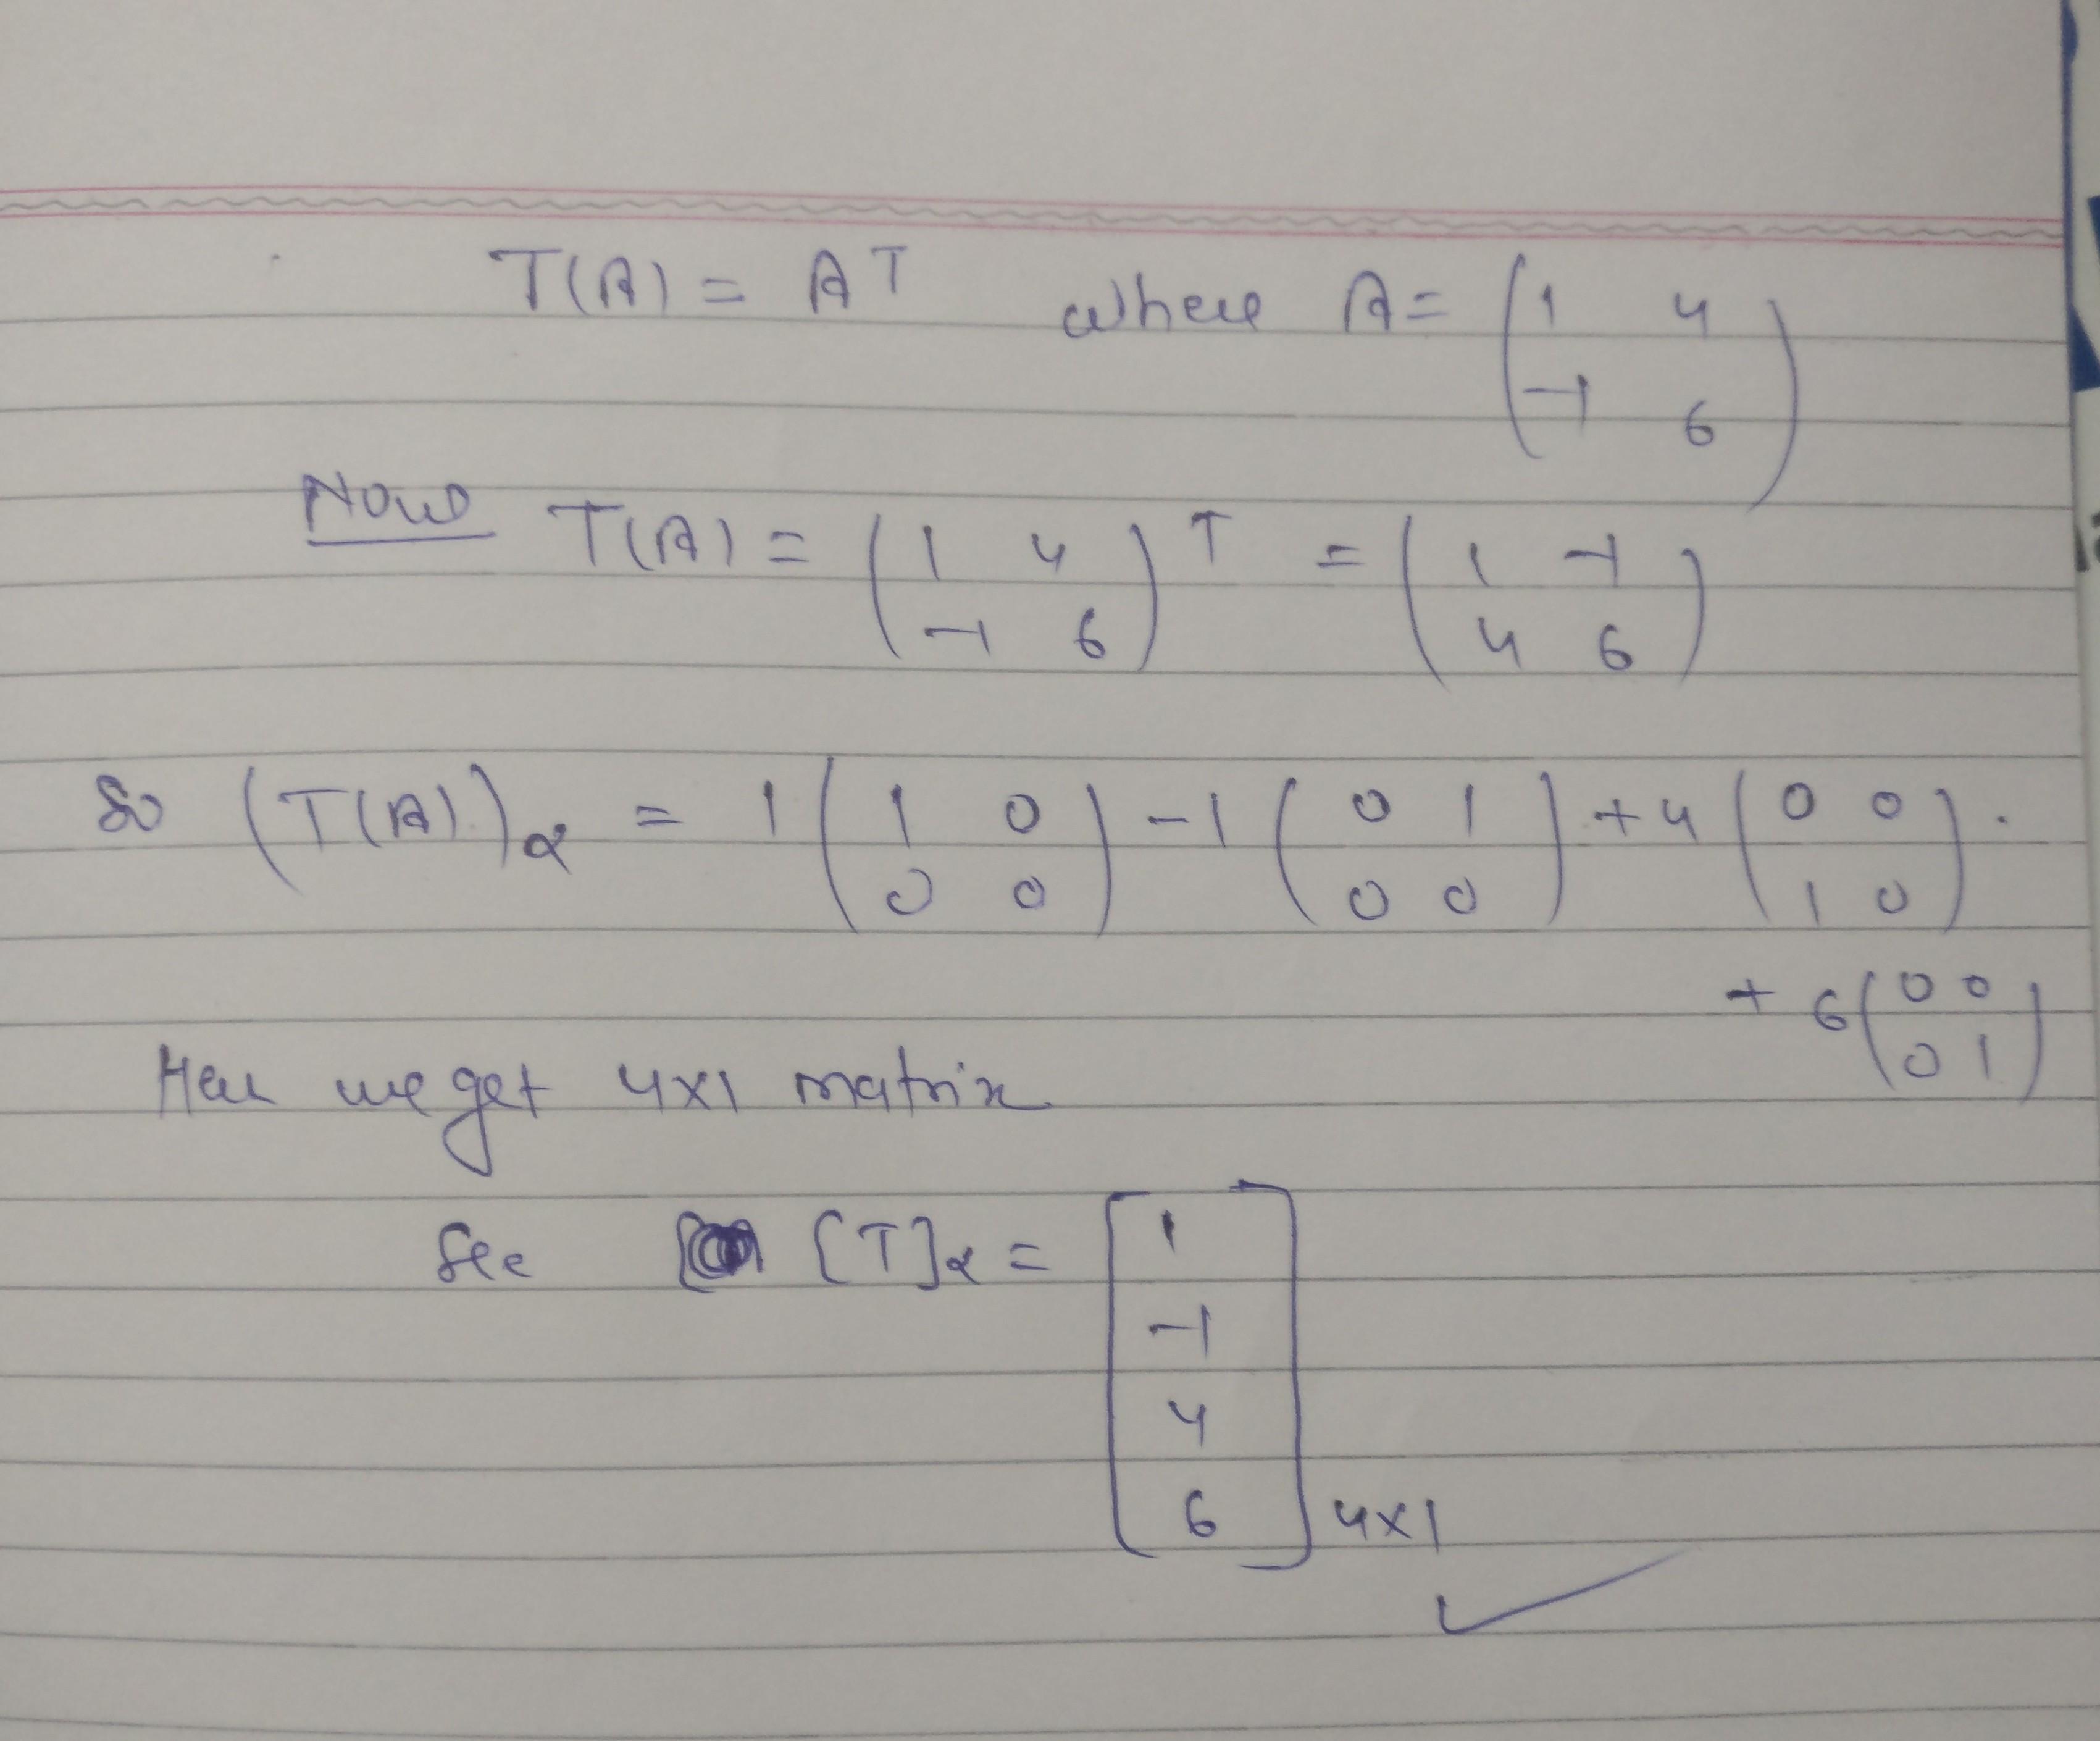 T(A) = A^T where A = (1 4
-1 6)
Now T(A) = (1 4
-1 6)^T = (1 -1
4 6)
So (T(A))α = 1 (1 0
0 0) -1 (0 1
0 0) + 4 (0 0
1 0)
+ 6 (0 0
0 1)
Her we get 4x1 matrix
See [T]α = [1
-1
4
6] 4x1